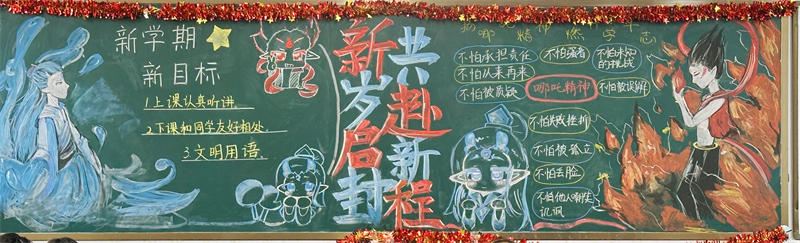 新学期
新目标
1上课认真听讲.
2.下课和同学友好相处.
3.文明用语.
新岁启封
共赴新程
哪吒精神燃学志
不怕承担责任
不怕强者
不怕未知的挑战
不怕从来再来
哪吒精神
不怕被误解
不怕被质疑
不怕失败挫折
不怕被孤立
不怕丢脸
不怕他人嘲笑
讥讽